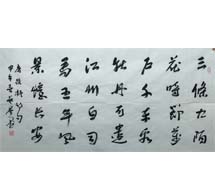 三條九陌
花時節萬
戶千車看
牡丹爭遣
江州白司
馬五年風
景憶長安
唐徐凝詩
甲午